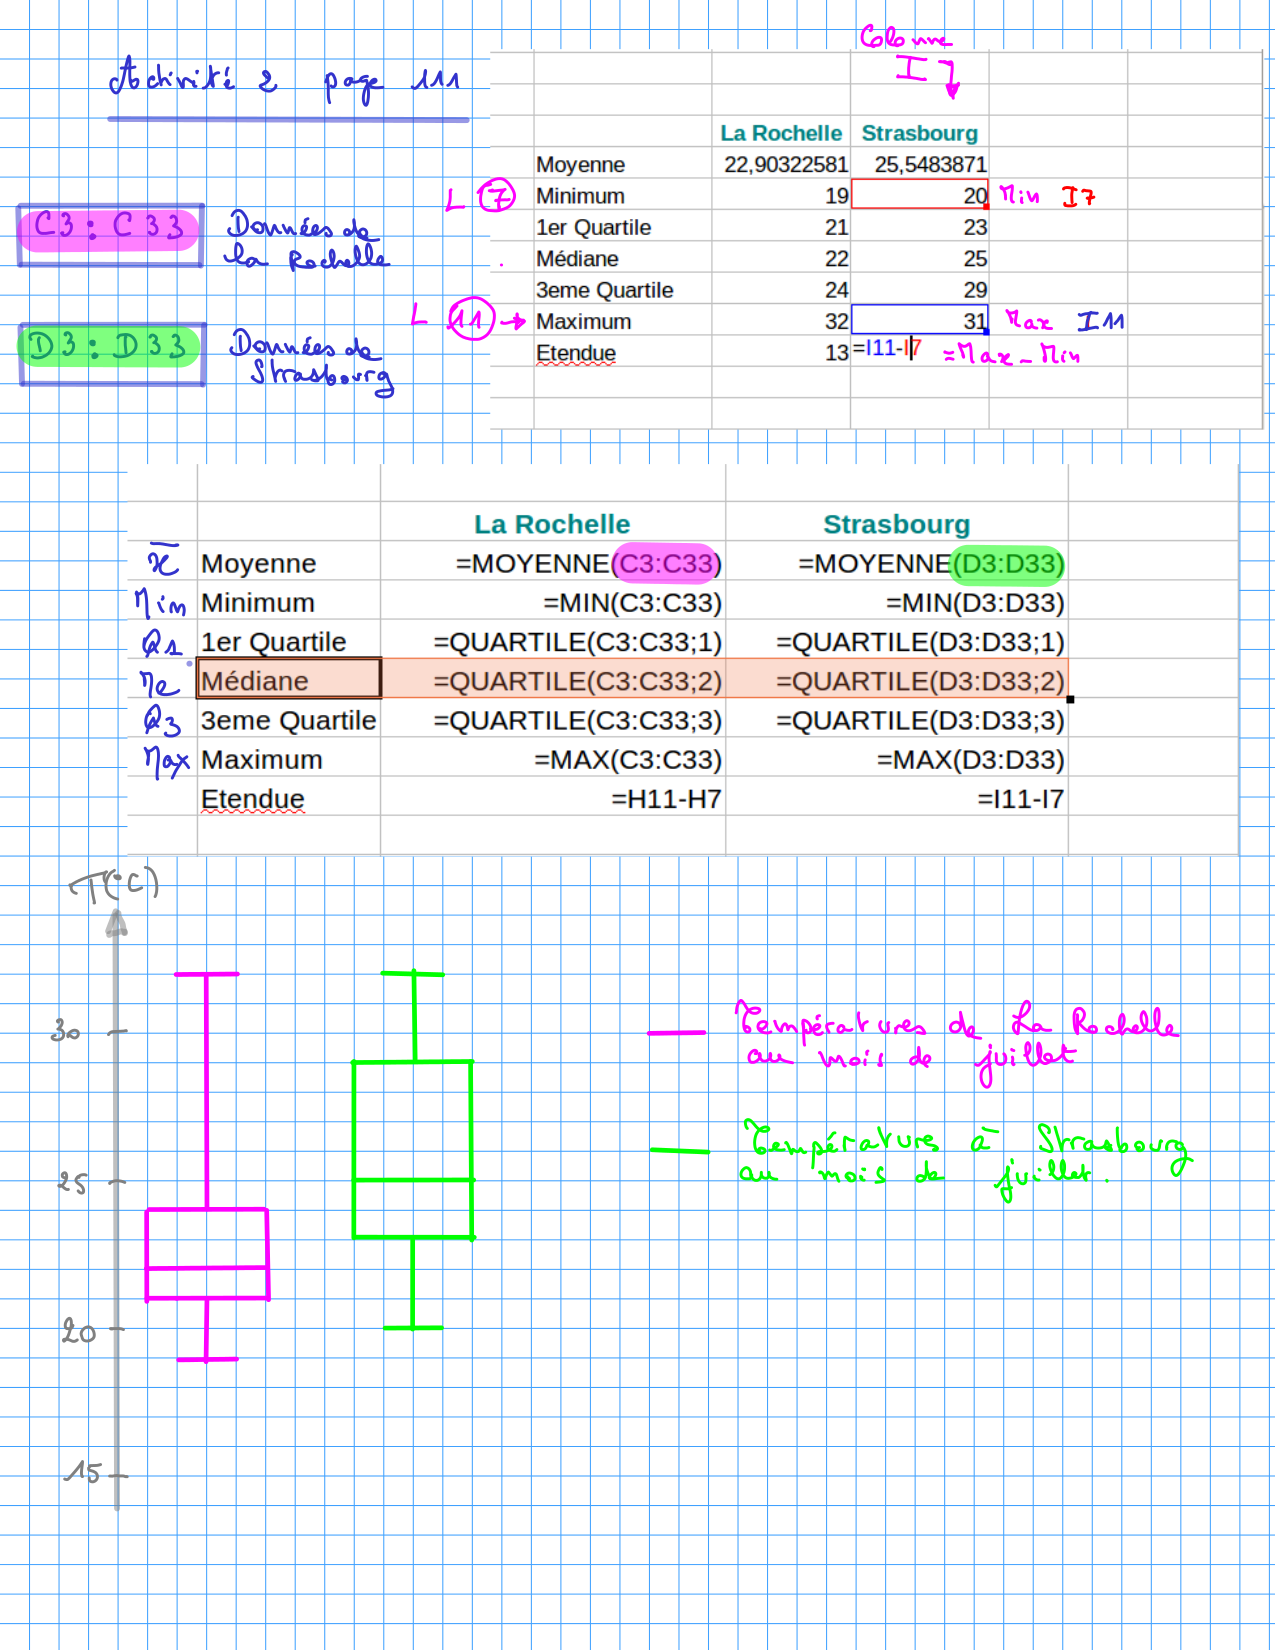 Activité 2 page 111
Colonne
I
La Rochelle Strasbourg
Moyenne 22,90322581 25,5483871
L 7 Minimum 19 20 Min I7
1er Quartile 21 23
Médiane 22 25
3eme Quartile 24 29
L 11 Maximum 32 31 Max I11
Etendue 13 =I11-I7 =Max-Min
C3:C33 Données de
la Rochelle
D3:D33 Données de
Strasbourg
La Rochelle Strasbourg
x̅ Moyenne =MOYENNE(C3:C33) =MOYENNE(D3:D33)
Min Minimum =MIN(C3:C33) =MIN(D3:D33)
Q1 1er Quartile =QUARTILE(C3:C33;1) =QUARTILE(D3:D33;1)
Me Médiane =QUARTILE(C3:C33;2) =QUARTILE(D3:D33;2)
Q3 3eme Quartile =QUARTILE(C3:C33;3) =QUARTILE(D3:D33;3)
Max Maximum =MAX(C3:C33) =MAX(D3:D33)
Etendue =H11-H7 =I11-I7
T(°C)
30
25
20
15
Températures de La Rochelle
au mois de juillet
Températures à Strasbourg
au mois de juillet.